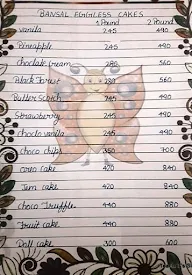 BANSAL EGGLESS CAKES
1 Pound 2 Pound
Vanilla 245 490
Pineapple 245 490
Choclate Cream 280 560
Black Forest 280 560
Butter Scotch 245 490
Strawberry 245 490
Choclo vanilla 245 490
Choco chips 350 700
Oreo cake 420 840
Jem Cake 420 840
Choco Truffle 440 880
Fruit Cake 440 880
Doll Cake 300 600